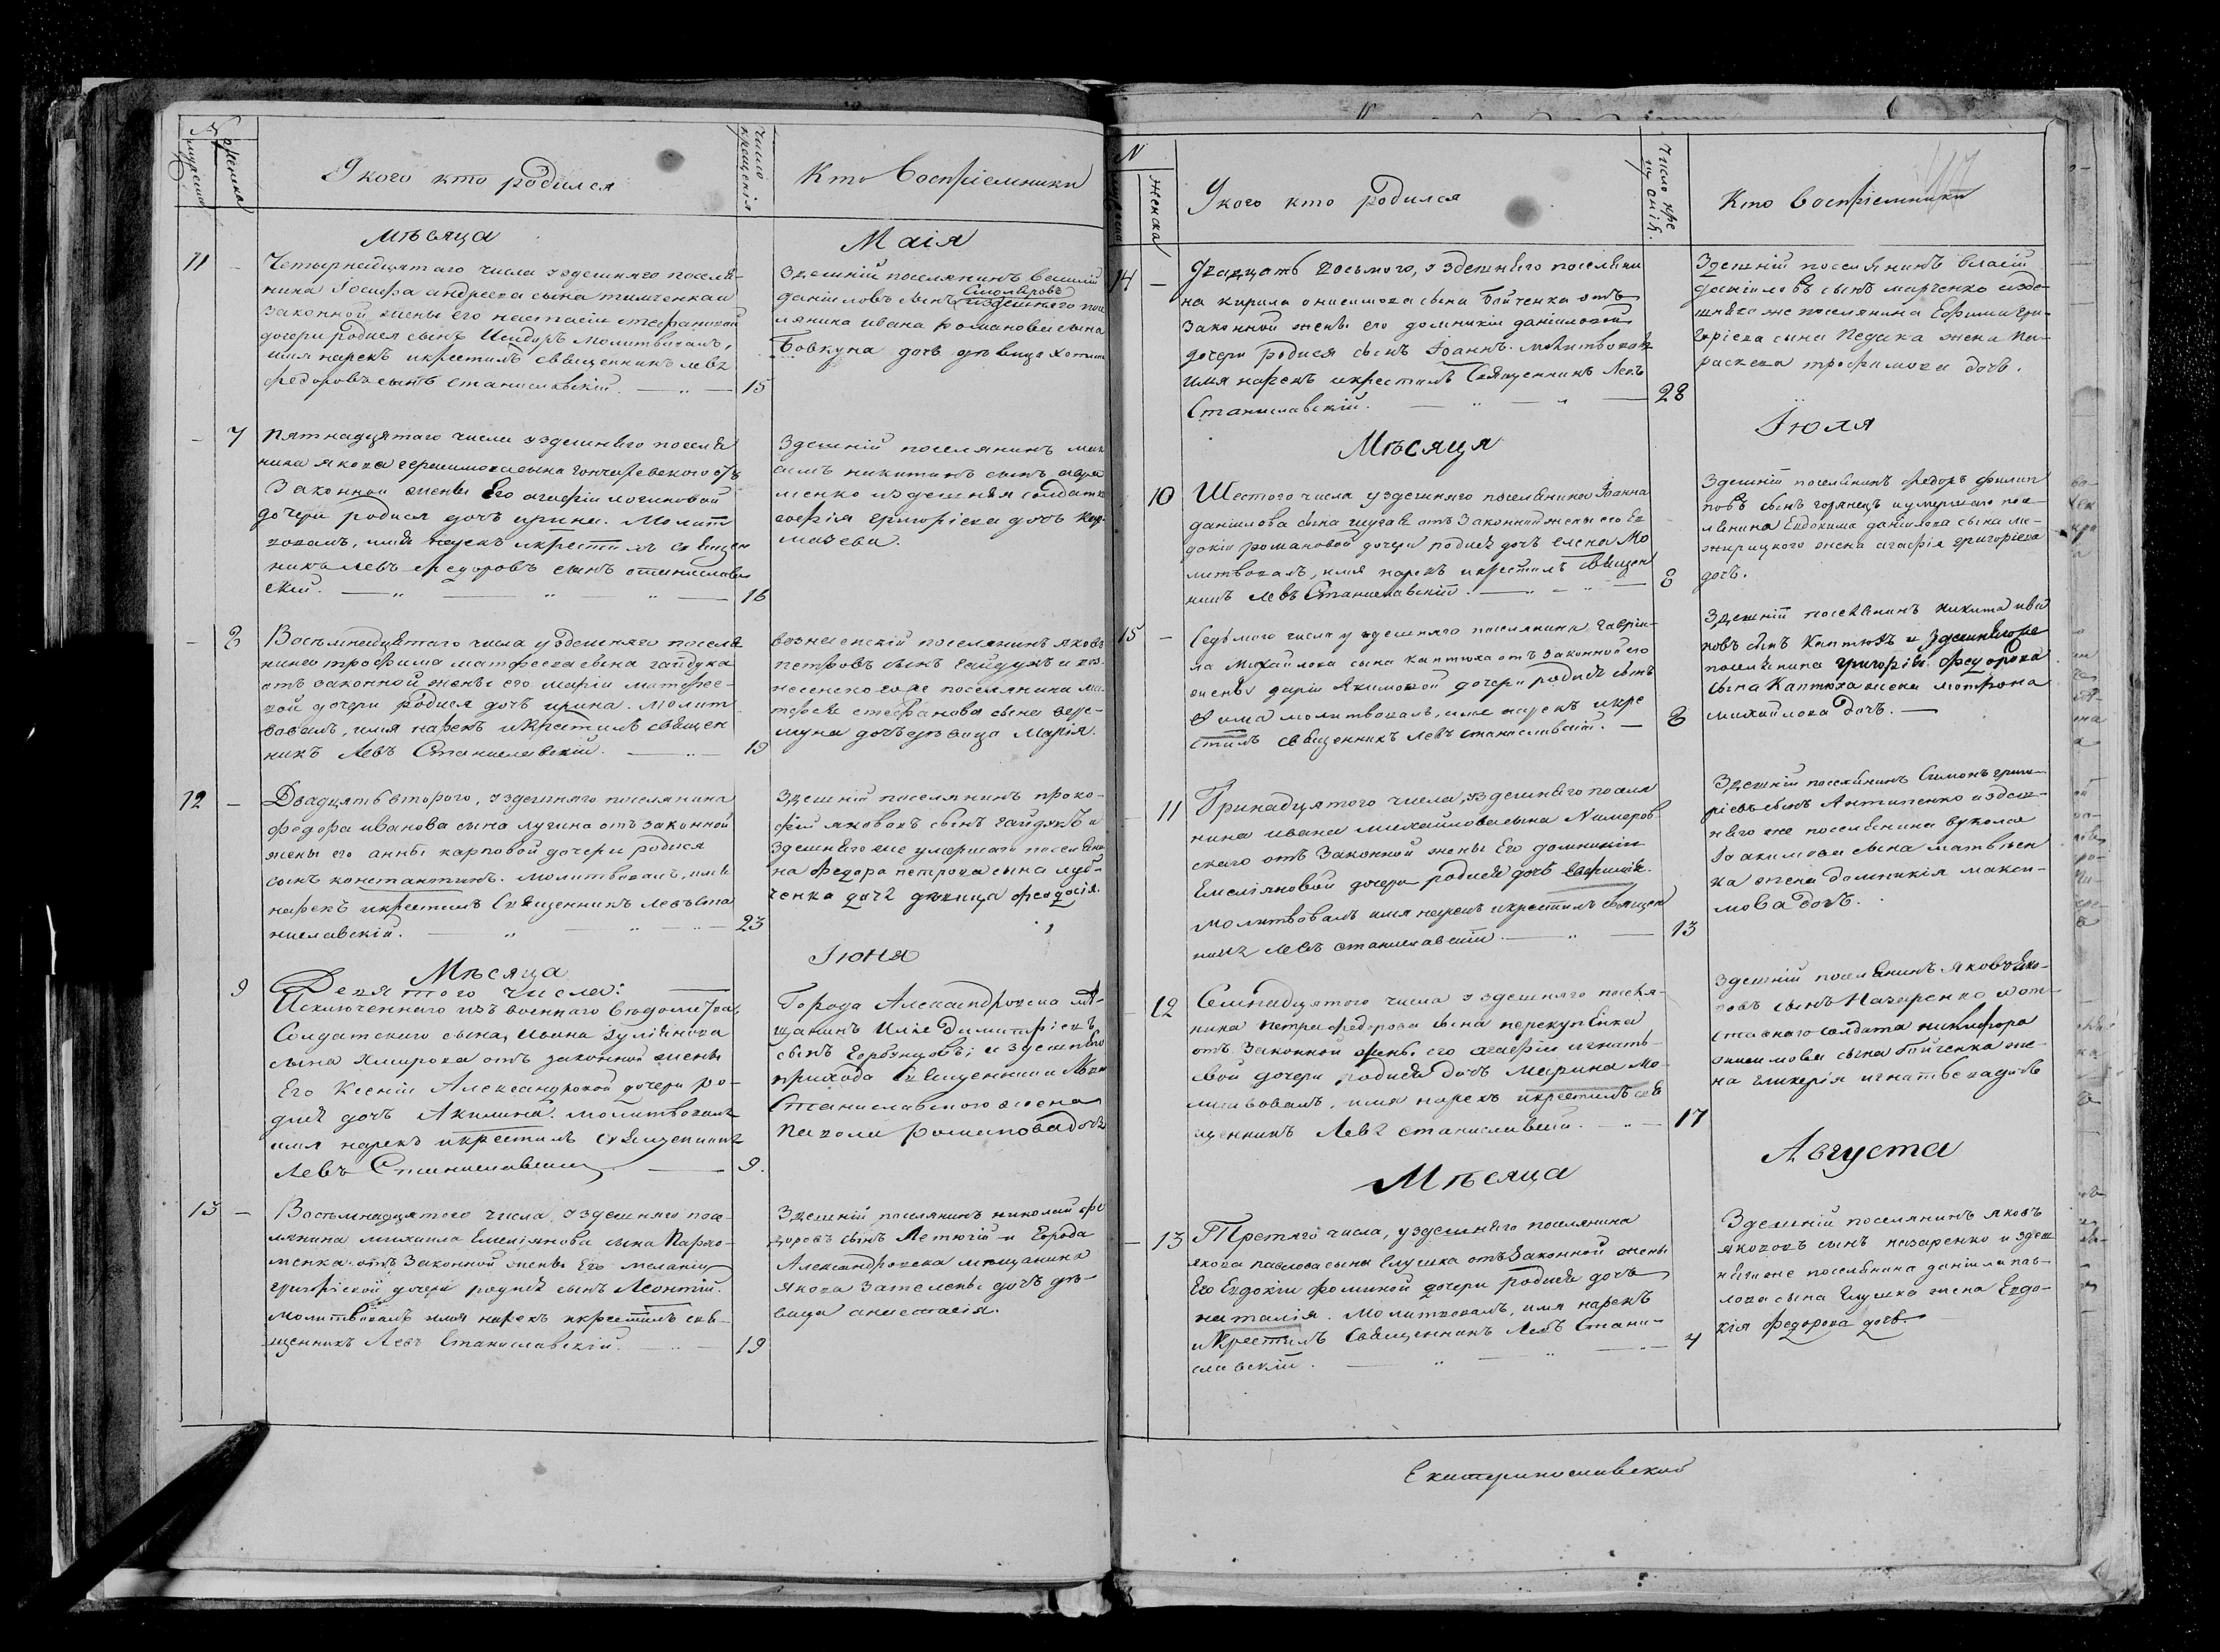 N
мужеска
женска
У кого кто родился
Число крещенія
Кто воспріемники
Мѣсяца
Маія
11 -
Четырнадцятаго числа уздешняго поселя-
нина Іосифа андреева сына тимченкаи
законной жены его настасіи стефановой
дочери родися сынъ Исидоръ молитвовалъ,
имя нарекъ икрестилъ священникъ левъ
федоровъ сынъ станиславскій.
15
Здешній поселянинъ
даніиловъ сынъ издешняго посе
лянина ивана романова сына
Бовкуна дочь дѣвица
- 7
Пятнадцятаго числа уздешняго поселя
нина якова герасимова сына гончаревского отъ
Законной жены Его агафіи логиновой
дочери родися дочь ирина. Молит
вовалъ, имя нарекъ икрестилъ священ
никъ Левъ Федоровъ сынъ станиславъ
скій.
16
Здешній поселянинъ
никитинъ сынъ
менко издешнея солдатка
софія григоріева дочь
- 8
Восемнадцятаго числа уздешняго поселя
нина трофима матфеева сына гайдука
отъ законной жены его маріи матфее-
вой дочери родися дочь ирина. Молит
вовалъ, имя нарекъ икрестилъ священ
никъ Левъ Станиславскій.
19
вознесенскій поселянинъ яковъ
петровъ сынъ гайдукъ и воз
несенскогоже поселянина ма-
тфея стефанова сына
дочь дѣвица Марія.
12 -
Двадцять второго, уздешняго поселянина
федора иванова сына лугина отъ законной
жены его анны карповой дочери родися
сынъ константинъ. Молитвовалъ, имя
нарекъ икрестилъ Священникъ левъ Ста
ниславскій.
23
Здешній поселянинъ проко-
фій яковокъ сынъ гайдукъ и
здешняго же умершаго поселяни
на федора петрова сына
ченка дочь дѣвица феодосія.
Мѣсяца
Іюня
9
Девятого числа:
Исключенного изъ военнаго вѣдомства,
Солдатского сына, Ивана
сына Ямирова отъ законной жены
Его Ксеніи Александровой дочери ро-
дися дочь Акилина. молитвовалъ
имя нарекъ икрестилъ священникъ
Левъ Станиславскій
9.
Города Александровска мѣ-
щанинъ Илія Димитріевъ
сынъ Горбунцовъ; и здешняго
прихода Священника Льва
Станиславского жена
романова дочь
13 -
Восемнадцятого числа, уздешняго посе-
лянина михаила Емеліянова сына Пархо-
менка отъ Законной жены Его меланіи
григоріевой дочери родися сынъ Леонтій.
Молитвовалъ имя нарекъ икрестилъ свя-
щенникъ Левъ Станиславскій.
19
Здешній поселянинъ николай фе
доровъ сынъ Летючій и Города
Александровска мещанина
якова дочь дѣ-
вица анастасія.
N
женска
У кого кто родился
Число кре
щенія.
Кто воспріемники
14 -
Двадцать восьмого, уздешняго поселяни
на кирила онисимова сына Бойченка отъ
Законной жены его домникіи даніиловой
дочери родися сынъ Іоаннъ. молитвовалъ
имя нарекъ икрестилъ Священникъ Левъ
Станиславскій.
28
Здешній поселянинъ власій
даніиловъ сынъ марченко изде-
шняго же поселянина Ефима Гри-
горіева сына Педака жена Па-
раскева трофимова дочь.
Мѣсяца
Іюля
10
Шестого числа уздешняго поселянина Іоанна
даніилова сына отъ Законной жены его Ев
докіи романовой дочери родися дочь елена Мо
литвовалъ, имя нарекъ икрестилъ священ
никъ Левъ Станиславскій.
8
Здешній поселянинъ Федоръ филип
повъ сынъ горянецъ иумершаго посе-
лянина Евдокима даніилова сына ме-
жирицкого жена агафія григоріева
дочь.
15 -
Седьмого числа уздешняго поселянина гавріи-
ла Михайлова сына каптюха отъ Законной его
жены даріи Акимовой дочери родися сынъ
молитвовалъ, имя нарекъ икре
стилъ священникъ Левъ станиславскій.
8
Здешній поселянинъ никита ива
новъ сынъ Каптюхъ и здешнягоже
поселянина григорія федорова
сына Каптюха жена мотрона
михайлова дочь.
- 11
Тринадцятого числа, уздешняго поселя
нина ивана михайлова сына
скаго отъ Законной жены Его домникіи
Емеліяновой дочери родися дочь
молитвовалъ имя нарекъ икрестилъ священ
никъ Левъ станиславскій
13
Здешній поселянинъ Симонъ григо
ріевъ сынъ Антипенко издеш-
няго же поселянина вукола
Іоакимова сына матвѣен
ка жена домникія макси-
мова дочь.
- 12
Семнадцятого числа уздешняго поселя-
нина петра федорова сына перекупенка
отъ Законной жены его агафіи игнать-
евой дочери родися дочь Марина Мо-
литвовалъ, имя нарекъ икрестилъ свя
щенникъ Левъ станиславскій.
17
Здешній поселянинъ яковъ яко-
повъ сынъ Назаренко и от-
ставного солдата никифора
онисимова сына бойченка же-
на гликерія игнатьева дочь
Мѣсяца
Августа
- 13
Третяго числа, уздешняго поселянина
якова павлова сына Глушка отъ Законной жены
Его Евдокіи фоминой дочери родися дочь
наталія. молитвовалъ, имя нарекъ
икрестилъ Священникъ Левъ Стани-
славскій.
4
Здешній поселянинъ яковъ
яковокъ сынъ назаренко и здеш
нягоже поселянина даніила пав-
лова сына Глушка жена Евдо-
кія федорова дочь.
Екатеринославской